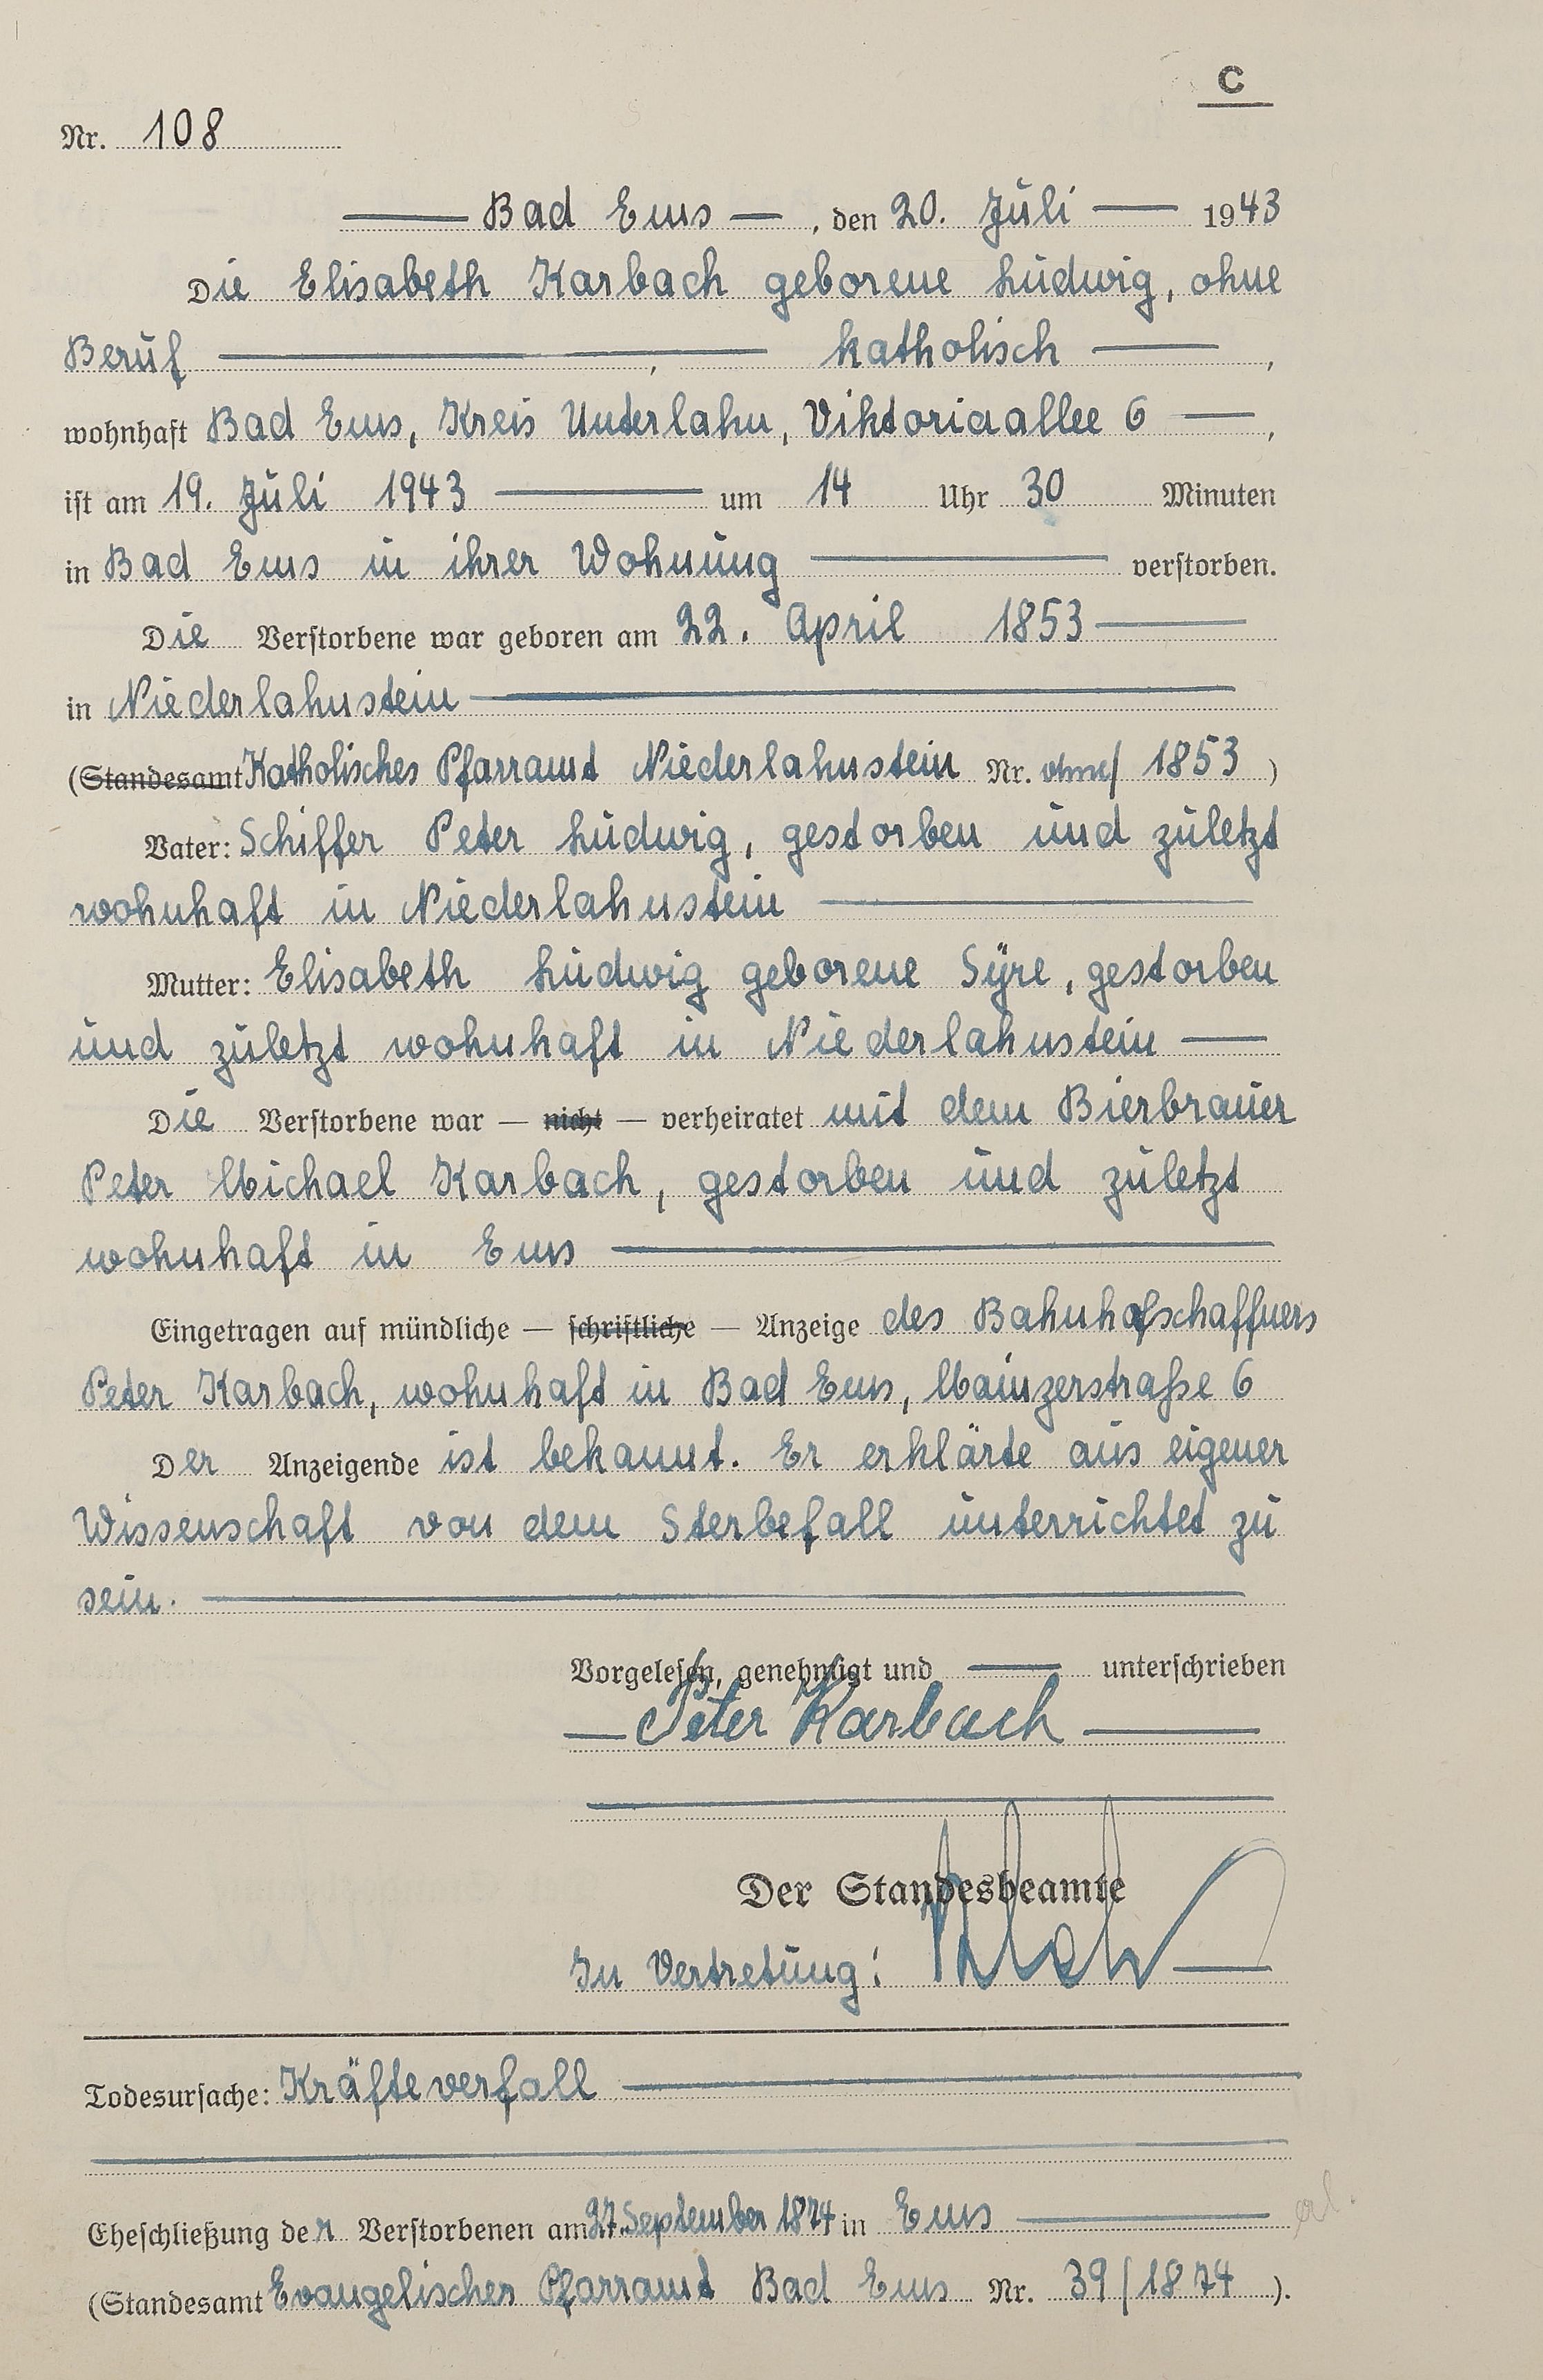 C
Nr. 108
Bad Ems, den 20. Juli 1943
Die Elisabeth Karbach geborene Ludwig, ohne
Beruf, katholisch,
wohnhaft Bad Ems, Kreis Unterlahn, Viktoriaallee 6,
ist am 19. Juli 1943 um 14 Uhr 30 Minuten
in Bad Ems in ihrer Wohnung verstorben.
Die Verstorbene war geboren am 22. April 1853
in Niederlahnstein
(Standesamt Katholisches Pfarramt Niederlahnstein Nr. ohne/ 1853)
Vater: Schiffer Peter Ludwig, gestorben und zuletzt
wohnhaft in Niederlahnstein
Mutter: Elisabeth Ludwig geborene Syre, gestorben
und zuletzt wohnhaft in Niederlahnstein
Die Verstorbene war — nicht — verheiratet mit dem Bierbrauer
Peter Michael Karbach, gestorben und zuletzt
wohnhaft in Ems
Eingetragen auf mündliche — schriftliche — Anzeige des Bahnhofschaffners
Peter Karbach, wohnhaft in Bad Ems, Mainzerstraße 6
Der Anzeigende ist bekannt. Er erklärte aus eigener
Wissenschaft von dem Sterbefall unterrichtet zu
sein.
Vorgelesen, genehmigt und — unterschrieben
Peter Karbach
Der Standesbeamte
In Vertretung:
Todesursache: Kräfteverfall
Eheschließung der Verstorbenen am 27. September 1874 in Ems
(Standesamt Evangelisches Pfarramt Bad Ems Nr. 39/1874).